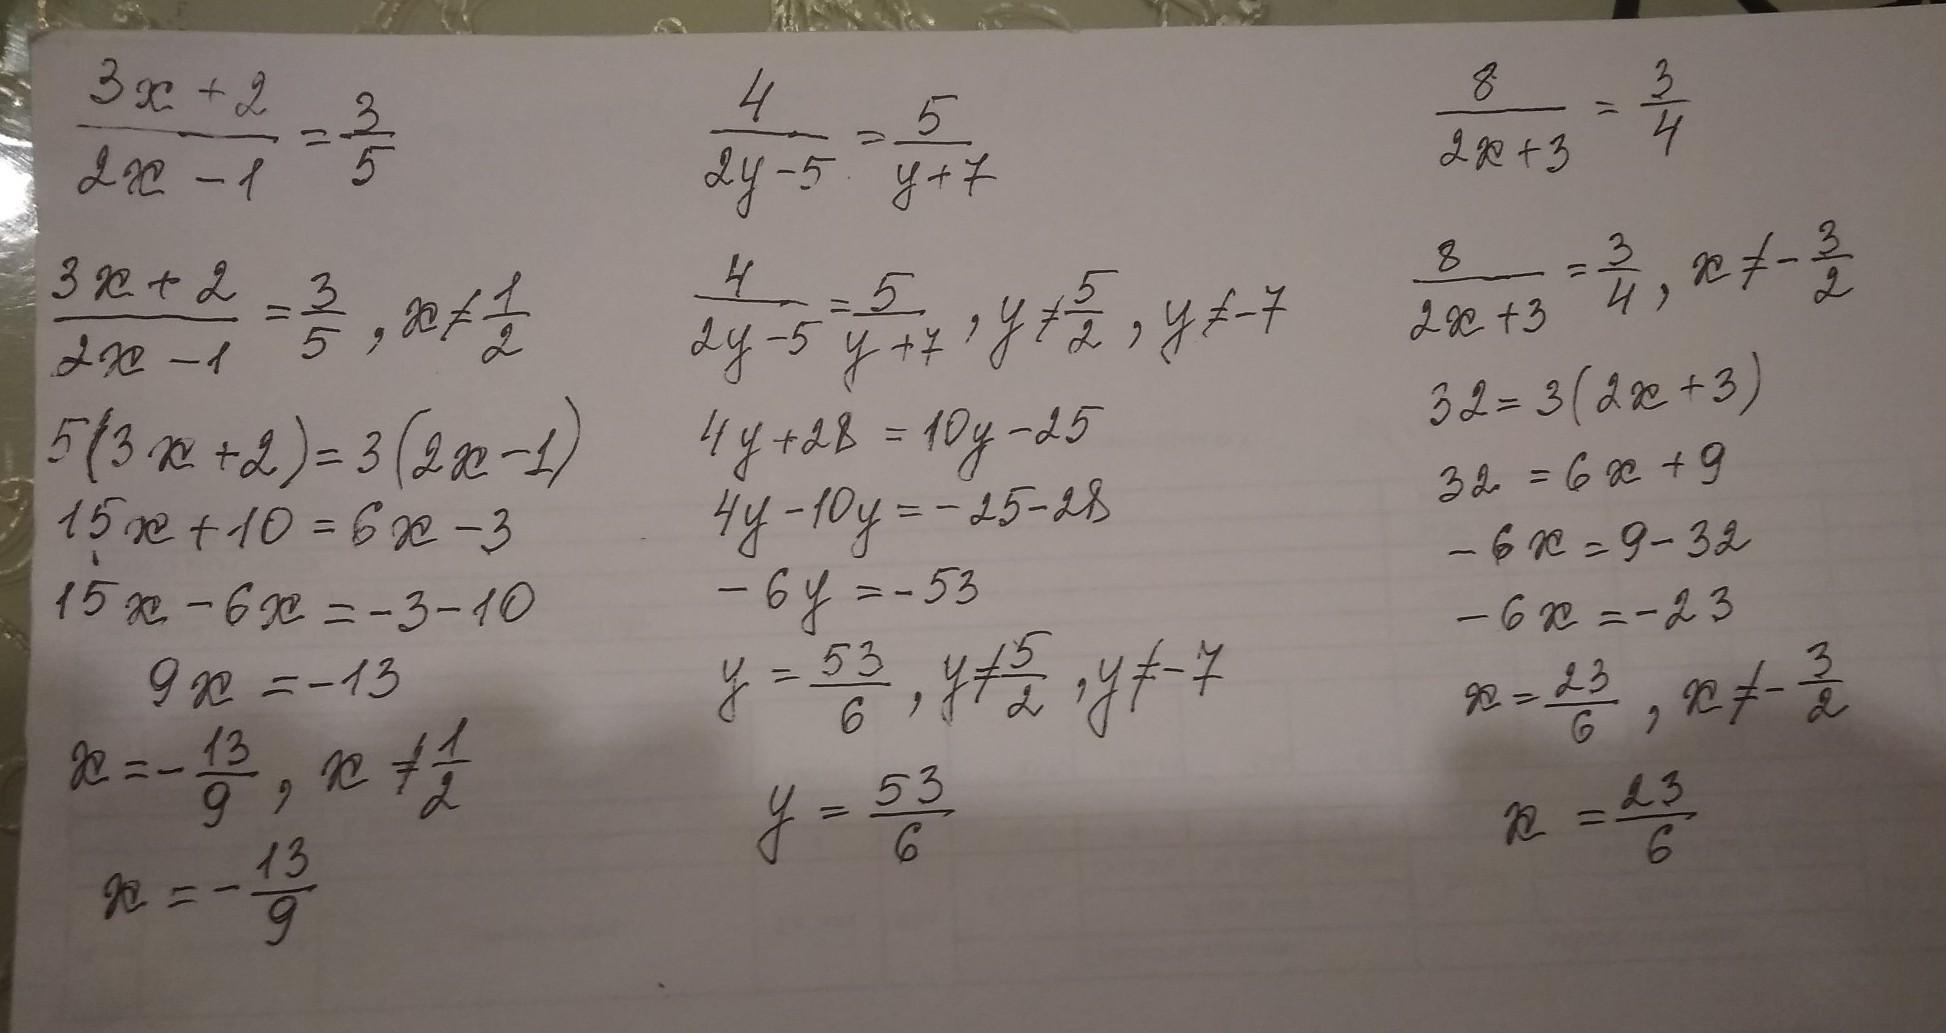 (3x+2)/(2x-1) = 3/5
(3x+2)/(2x-1) = 3/5, x≠1/2
5(3x+2)=3(2x-1)
15x+10=6x-3
15x-6x=-3-10
9x=-13
x=-13/9, x≠1/2
x=-13/9
4/(2y-5) = 5/(y+7)
4/(2y-5) = 5/(y+7), y≠5/2, y≠-7
4y+28=10y-25
4y-10y=-25-28
-6y=-53
y=53/6, y≠5/2, y≠-7
y=53/6
8/(2x+3) = 3/4
8/(2x+3) = 3/4, x≠-3/2
32=3(2x+3)
32=6x+9
-6x=9-32
-6x=-23
x=23/6, x≠-3/2
x=23/6